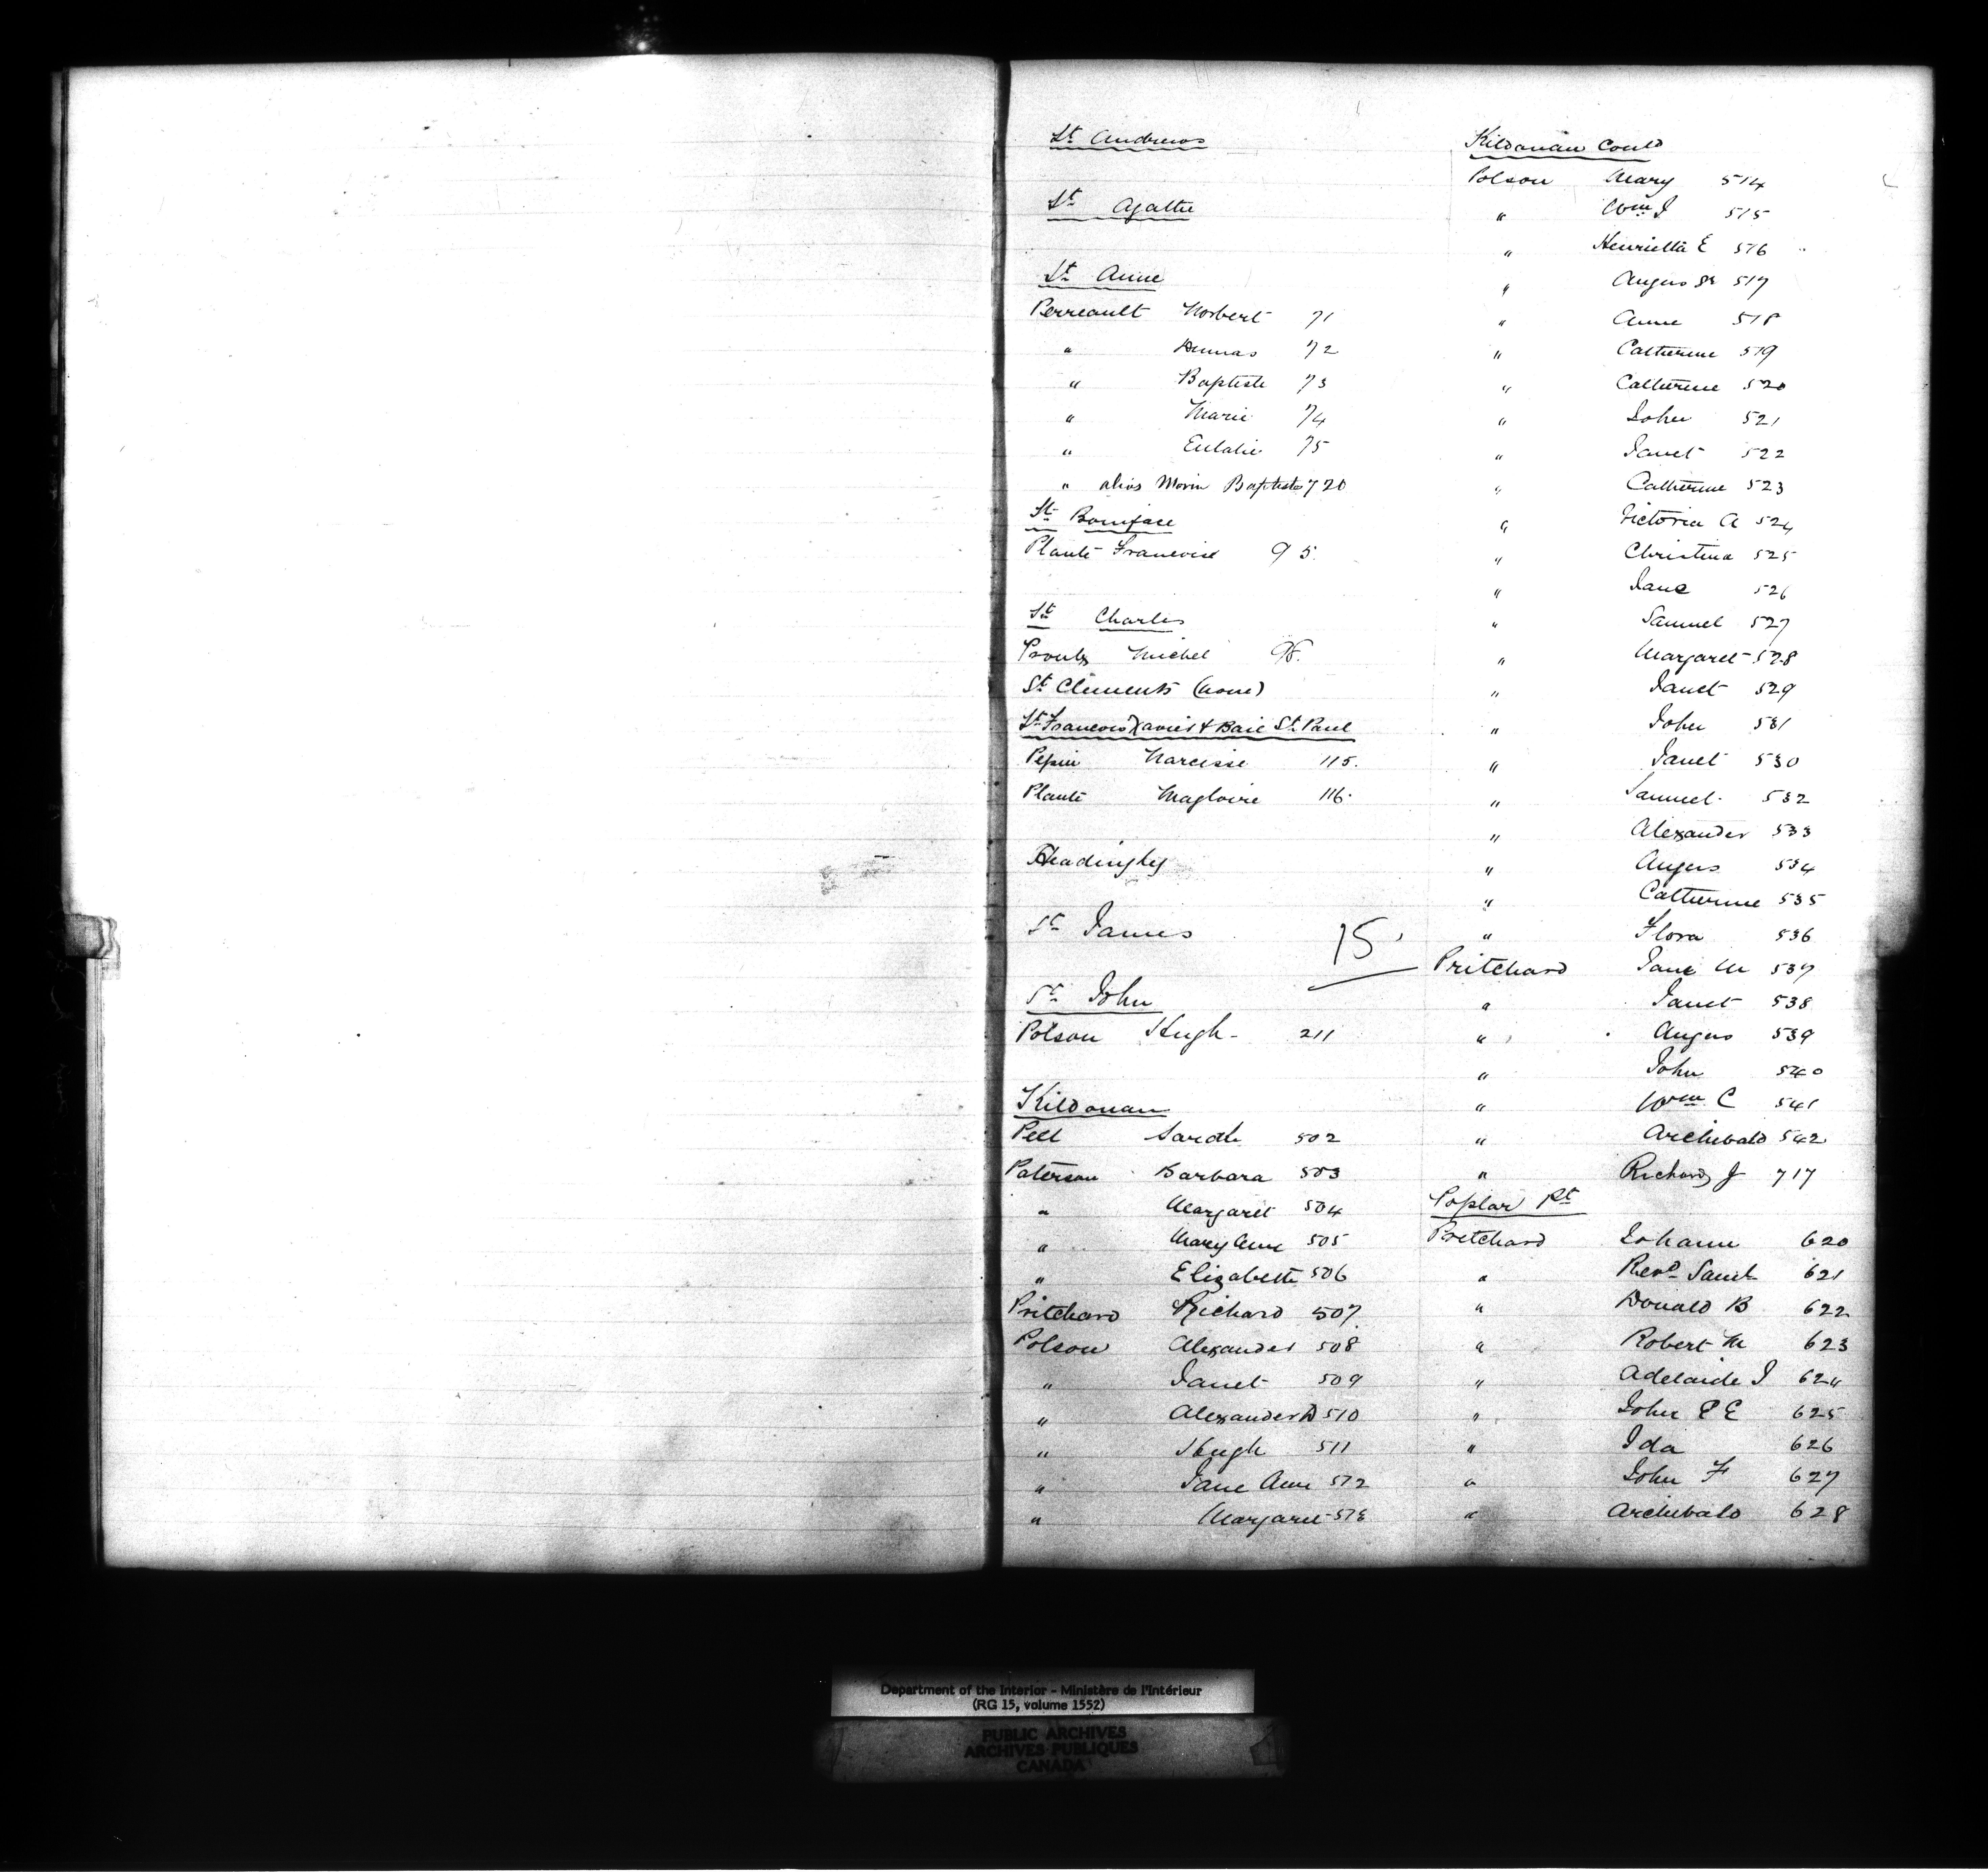 St Andrews
St Agathe
St Anne
Perreault Norbert 71
" Dumas 72
" Baptiste 73
" Marie 74
" Eulalie 75
" alias Morin Baptiste 720
St Boniface
Plante Francoise 95
St Charles
Proulx Michel
St Clements (none)
St Francois Xavier & Baie St. Paul
Pepin Narcisse 115.
Plante Magloire 116.
Headingley
St James
15
St John
Polson Hugh - 211
Kildonan
Pell Sarah 502
Paterson Barbara 503
" Margaret 504
" Mary Ann 505
" Elizabeth 506
Pritchard Richard 507
Polson Alexander 508
" Janet 509
" Alexander D 510
" Hugh 511
" Jane Ann 512
" Margaret 513
Kildonan Contd
Polson Mary 514
" Wm J 515
" Henrietta E 516
" Angus Sr 517
" Anne 518
" Catherine 519
" Catherine 520
" John 521
" Janet 522
" Catherine 523
" Victoria A 524
" Christina 525
" Jane 526
" Samuel 527
" Margaret 528
" Janet 529
" John 531
" Janet 530
" Samuel 532
" Alexander 533
" Angus 534
" Catherine 535
" Flora 536
Pritchard Jane M 537
" Janet 538
" Angus 539
" John 540
" Wm C 541
" Archibald 542
" Richard J 717
Poplar Pt
Pritchard Johann 620
" Revd Saml 621
" Donald B 622
" Robert M 623
" Adelaide J 624
" John P E 625
" Ida 626
" John F 627
" Archibald 628
Department of the Interior - Ministère de l'Intérieur
(RG 15, volume 1552)
PUBLIC ARCHIVES
ARCHIVES PUBLIQUES
CANADA